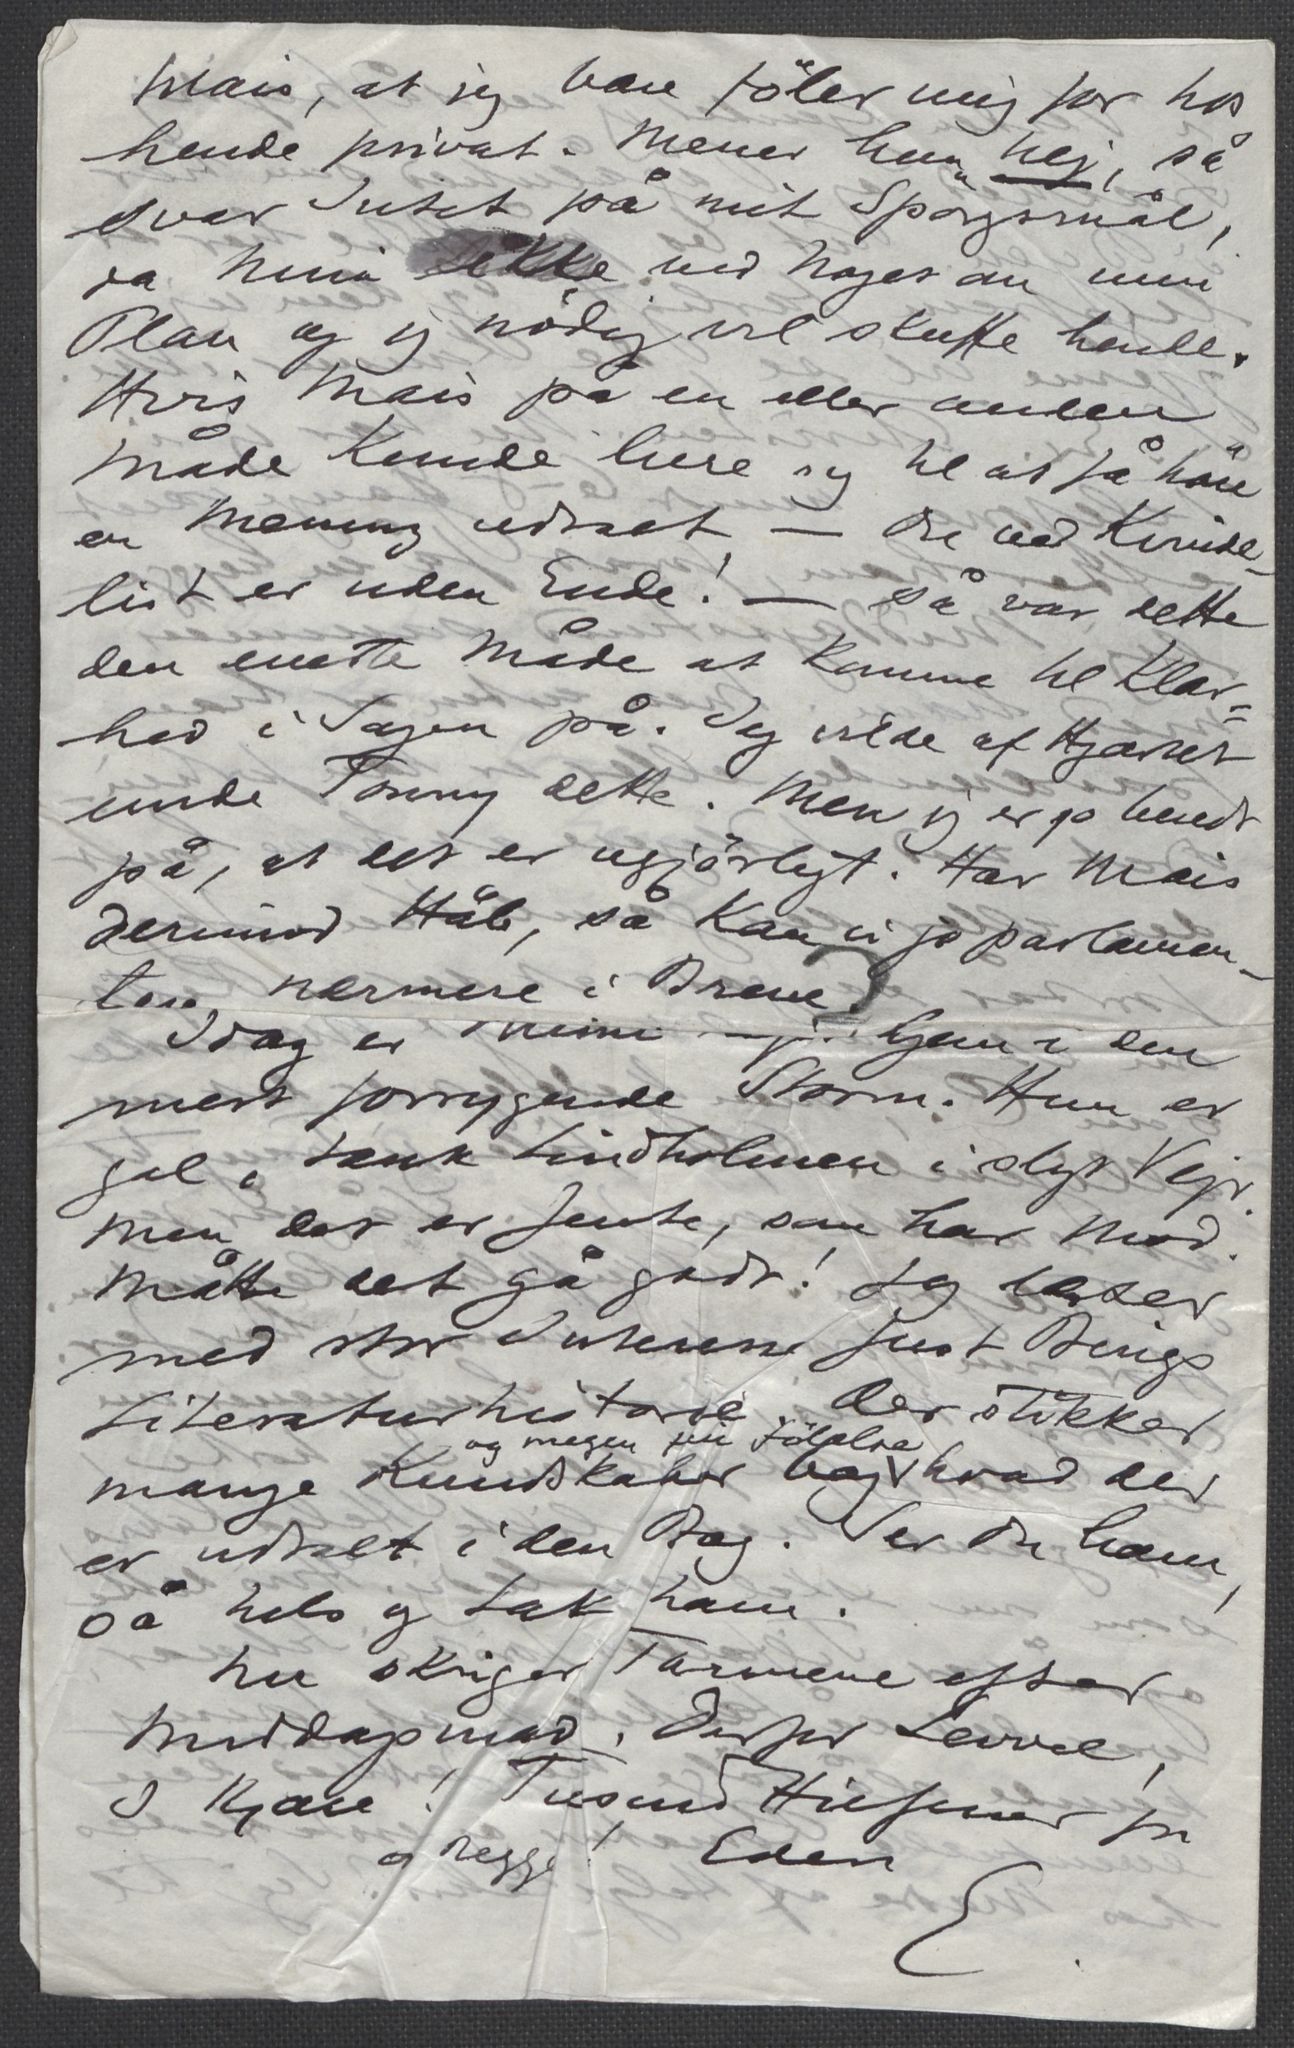 Mais, at jeg bare föler mig for hos
hende privat. Mener hun nej, så
svar Intet på mit Spörgsmål,
da Nina ikke ved Noget om min
Plan og jeg nödig vil skuffe hende.
Hvis Mais på en eller anden
Måde kunde lure sig til at få höre
en Mening udtalt, – Du ved Kvinde-
list er uden Ende! – så var dette
den eneste Måde at komme til Klar-
hed i Sagen på. Jeg vilde af Hjertet
unde Tonny dette. Men jeg er jo beredt
på, at det er ugjörligt. Har Mais
derimod Håb, så kan vi jo parlamen-
tere nærmere i Breve.
Idag er Mimi Hjem i den
mest forrygende Storm. Hun er
gal, tænk Lindholmen i sligt Vejr.
Men det er Jente, som har Mod.
Måtte det gå godt! Jeg læser
med stor Interesse Just Bings
Literaturhistorie. Der stikker
og megen fin Fölelse
mange Kundskaber bag hvad der
er udtalt i den Bog. Ser Du ham,
så hils og tak ham.
Nu skriger Tarmene efter
Middagsmad. Derfor Levvel,
I Kjære! Tusind Hilsener fra
Eders
og begge!
E
2